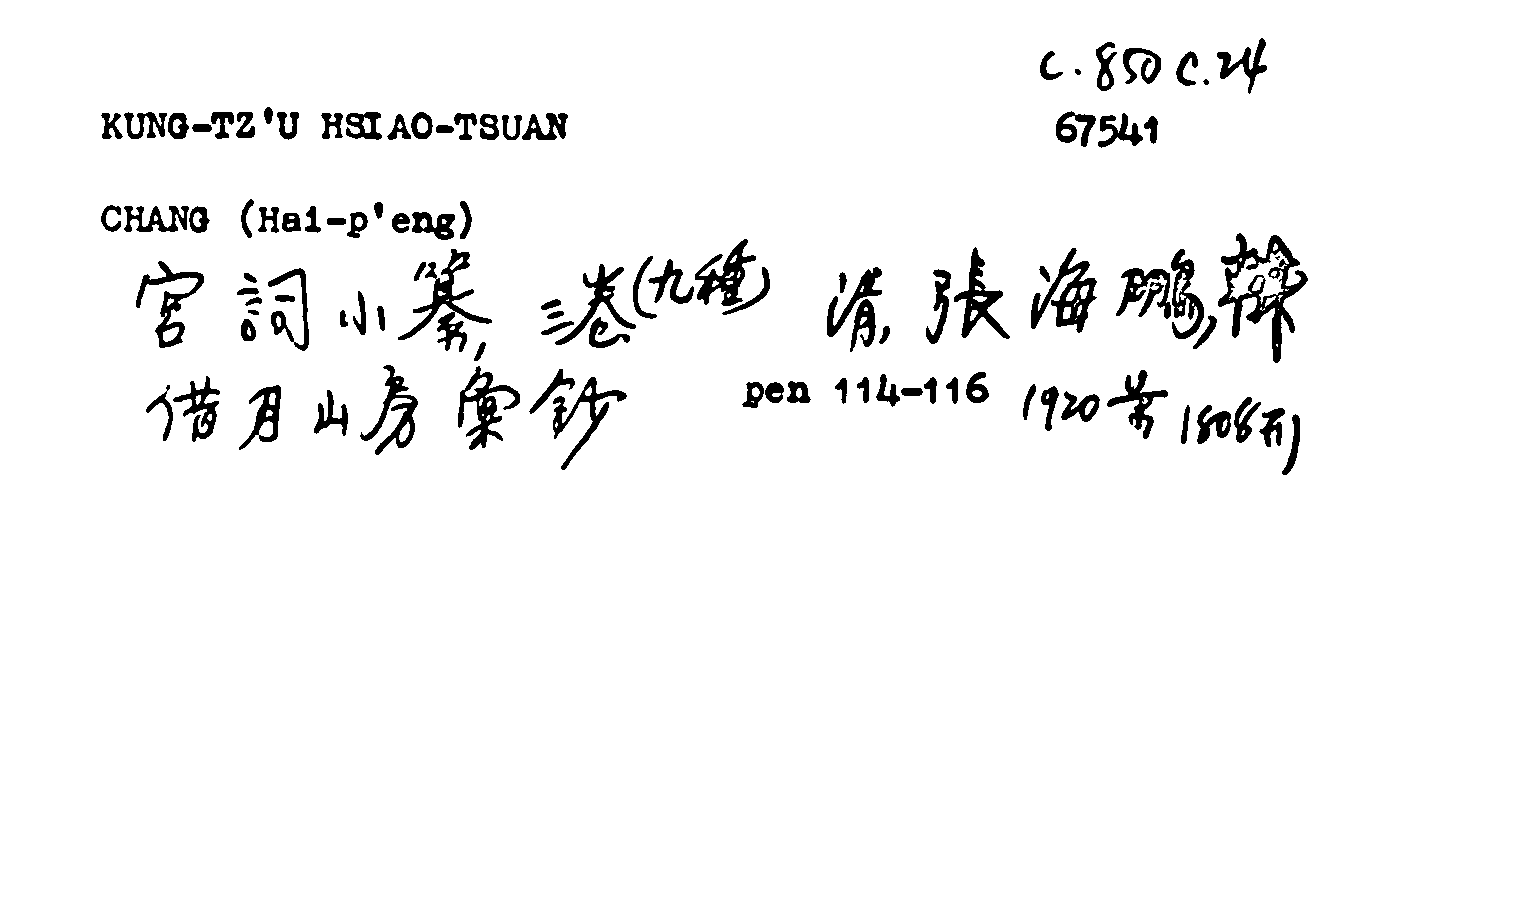 C.850 C.24
KUNG-TZ'U HSIAO-TSUAN 67541
CHANG (Hai-p'eng)
宮詞小纂, 三卷(九種) 清, 張海鵬,輯
借月山房彙鈔 pen 114-116 1920景1808刊